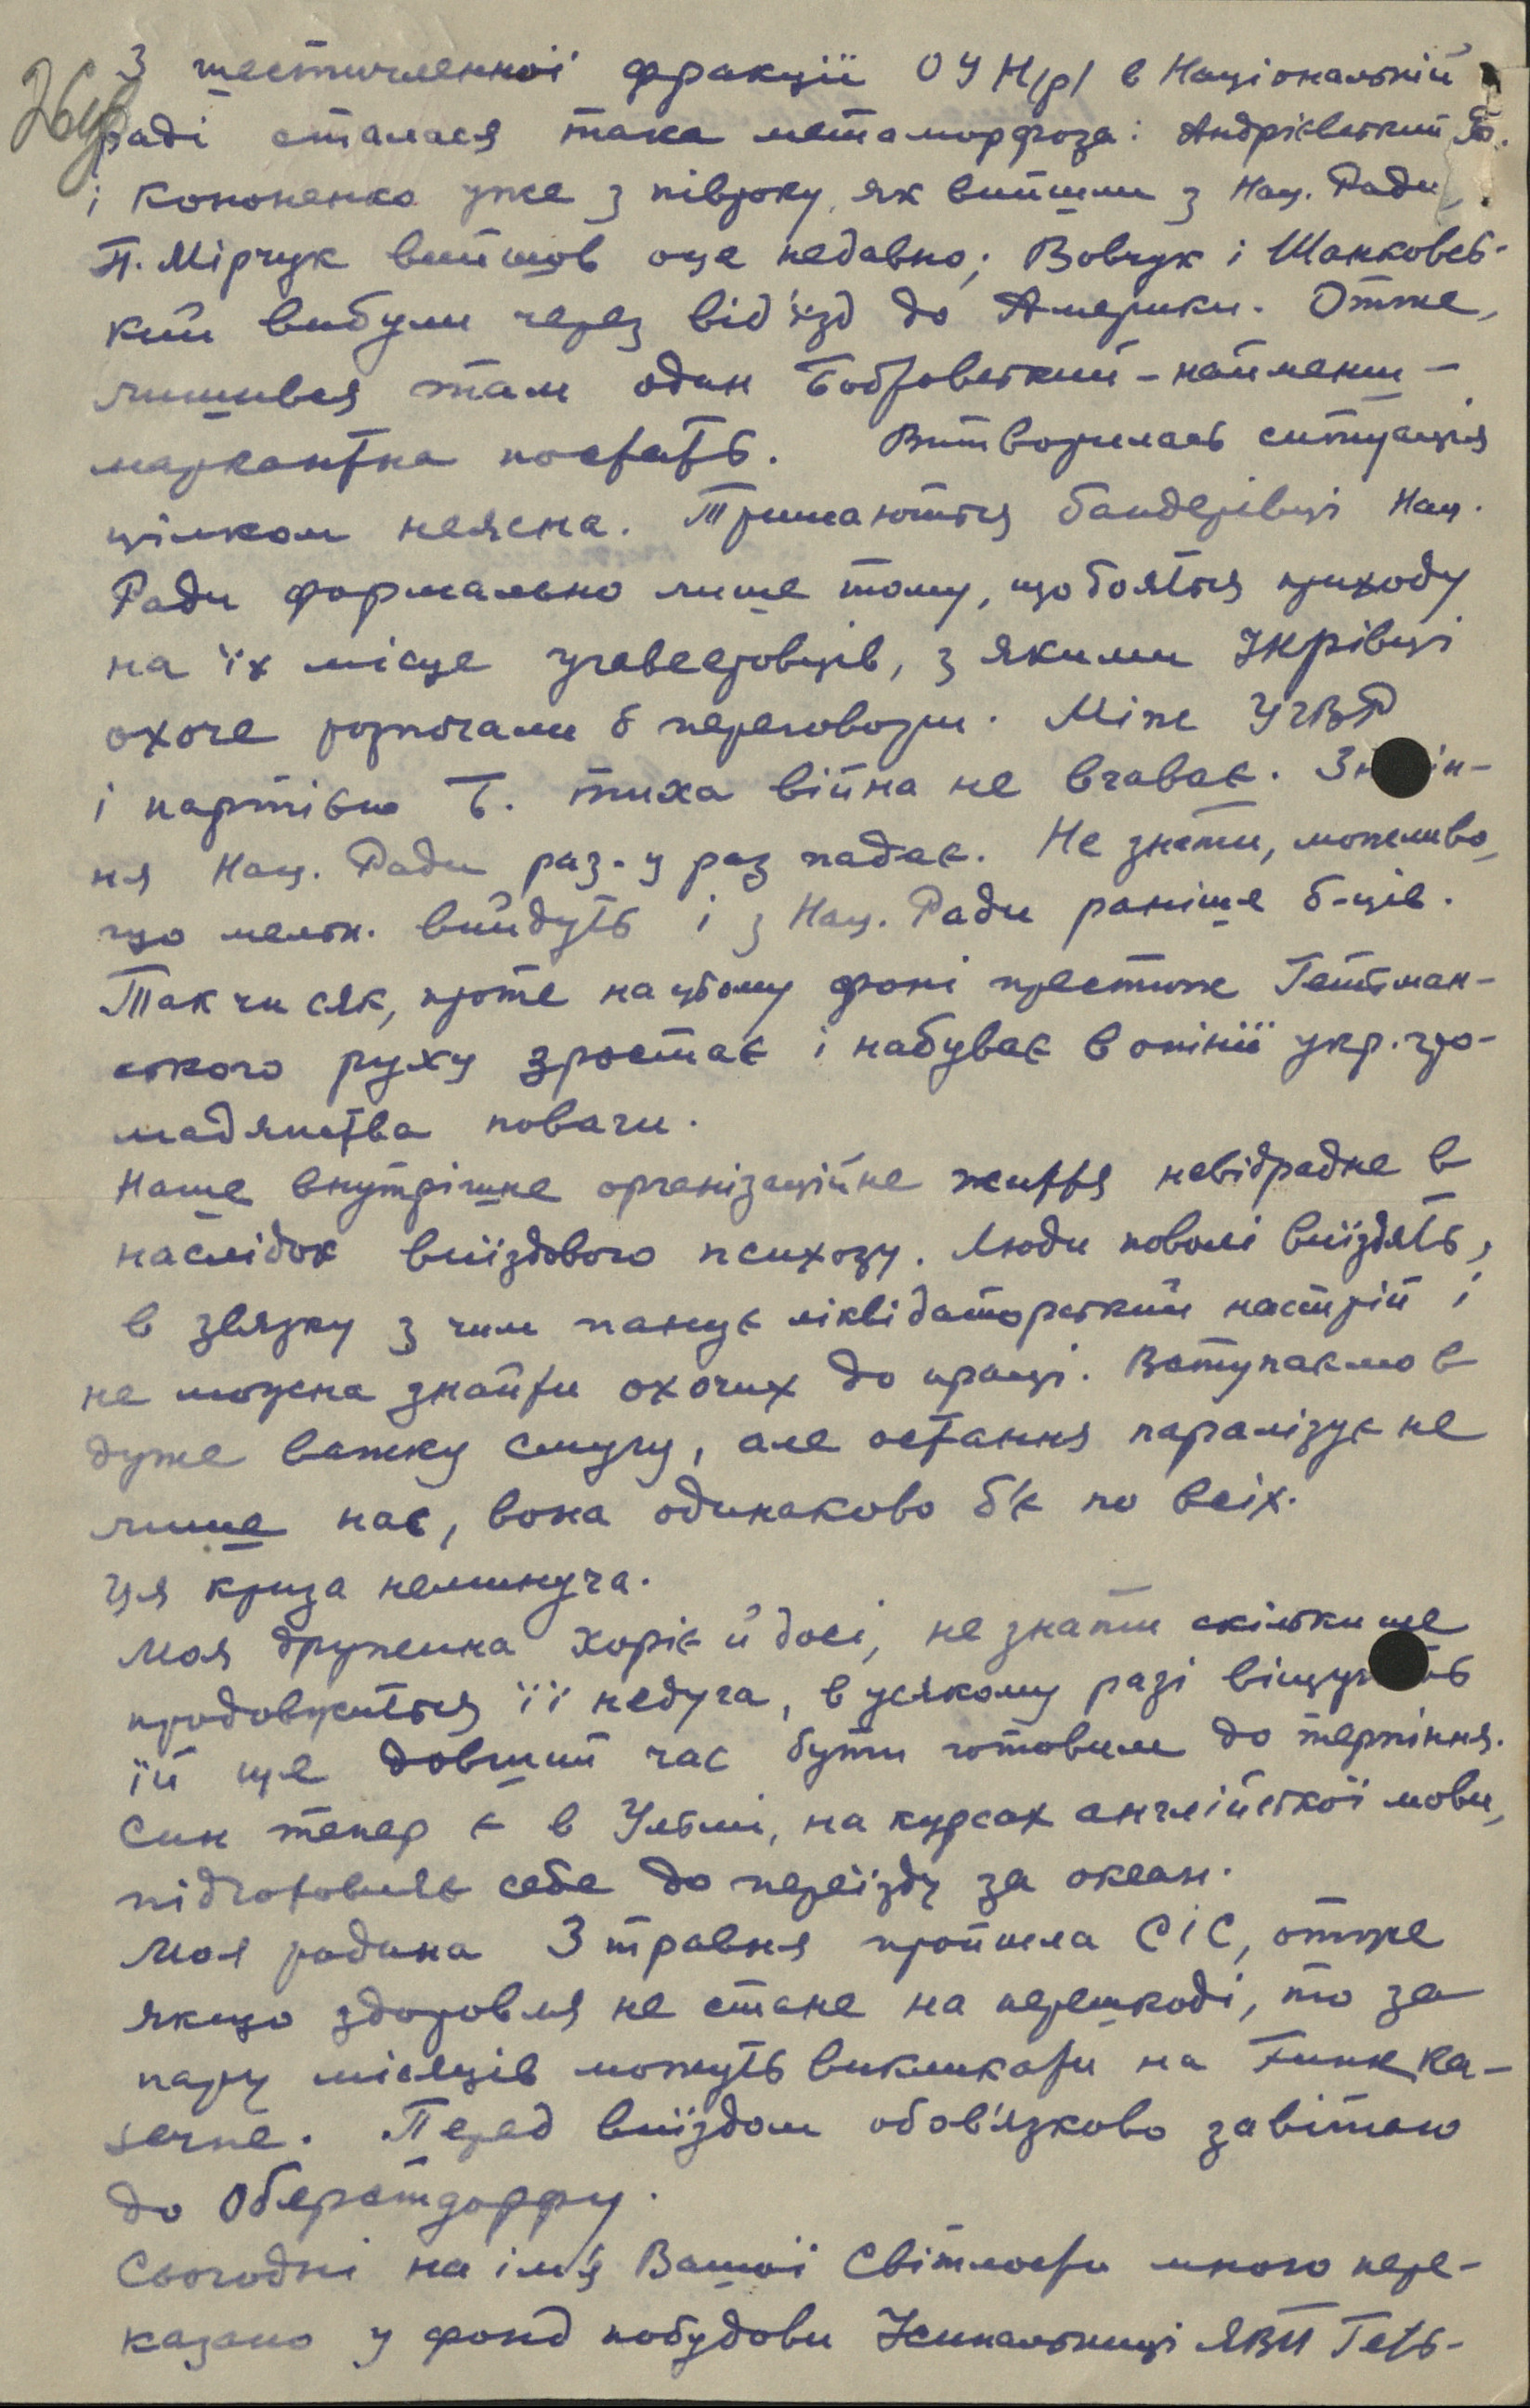 З шестичленної фракції ОУН/р/ в Національній
264
Раді сталася така метаморфоза: Андрієвський
і Кононенко уже з півроку, як вийшли з Нац. Ради,
П. Мірчук вийшов оце недавно; Вовчук і Шанковсь-
кий вибули через від'їзд до Америки. Отже,
лишився там один Бобровський - найменш -
маркантна постать. Витворилась ситуація
цілком неясна. Тримаються бандерівці Нац.
Ради формально лише тому, що бояться приходу
на їх місце угавеерівців, з якими УНРівці
охоче розпочали б переговори. Між УГВР
і партією Б. тиха війна не вгаває. Зн ін-
ня Нац. Ради раз-у раз падає. Не знати, можливо,
що мельн. вийдуть і з Нац. Ради раніше б-ців.
Так чи сяк, проте на цьому фоні престиж Гетьман-
ського руху зростає і набуває в опінії укр. гро-
мадянства поваги.
Наше внутрішнє організаційне життя невідрадне в
наслідок виїздового психозу. Люди поволі виїздять,
в звязку з чим панує ліквідаторський настрій і
не можна знайти охочих до праці. Вступаємо в
дуже важку смугу, але остання паралізує не
лише нас, вона однаково б'є по всіх.
Ця криза неминуча.
Моя дружина хоріє й досі, не знати скільки ще
продовжиться її недуга, в усякому разі віщу ть
їй ще довший час бути готовим до терпіння.
Син тепер є в Ульмі, на курсах англійської мови,
підготовляє себе до переїзду за океан.
Моя родина 3 травня пройшла СІС, отже
якщо здоровля не стане на перешкоді, то за
пару місяців можуть викликати на Funk Ka-
serne. Перед виїздом обов'язково завітаю
до Оберстдорфу.
Сьогодні на ім'я Вашої Світлости мною пере-
казано у фонд побудови Усипальниці ЯВП Геть-